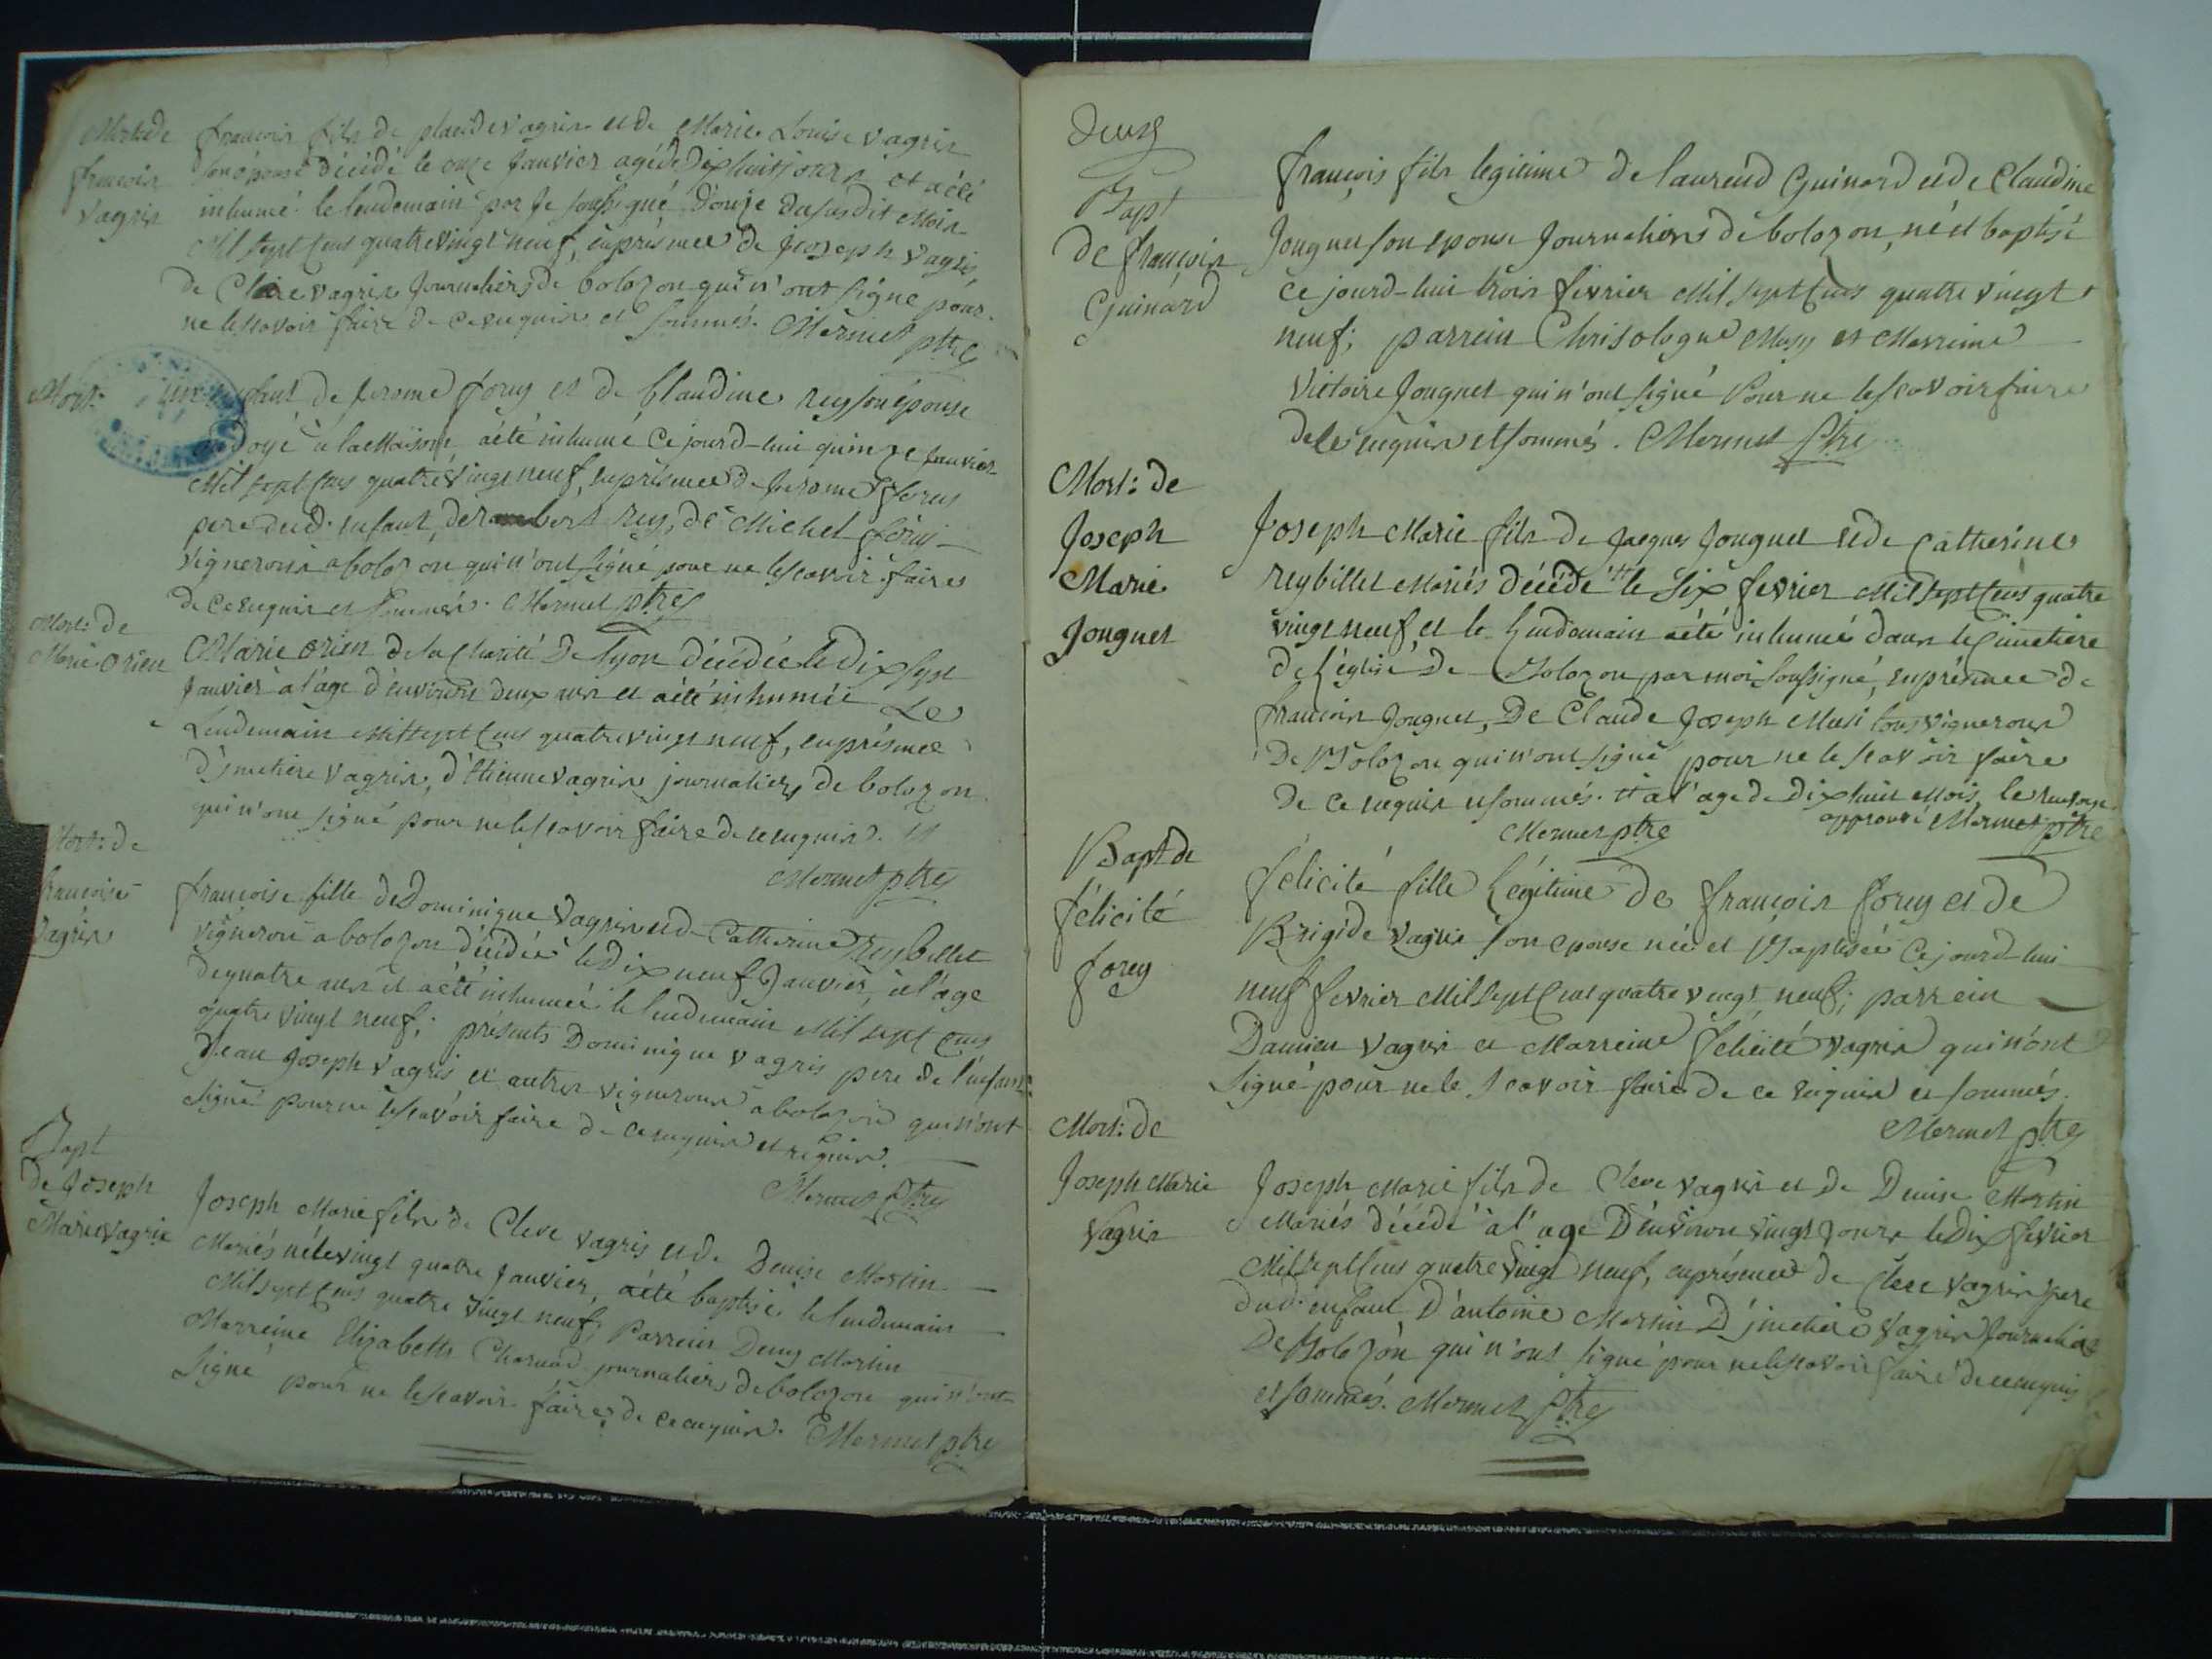 Mort de
françois
Vagris
françois fils de placide vagris et de Marie Louise vagris
son épouse décédé le onze janvier agé de dix huit jours et a été
inhumé le lendemain par je soussigné douze du susdit mois
Mil sept cens quatre vingt neuf, en présence de joseph vagris,
de Claire vagris journaliers de bolozon qui n'ont signé pour
ne le scavoir faire de ce enquis et sommés. Mermet ptre
Mort:
enfant de jerome forey et de Claudine rey son épouse
ondoyé à la Maison, a été inhumé Ce jourd-hui quinze janvier
Mil sept cens quatre vingt neuf, en présence de jerome forey
pere dud. enfant, de rambert rey, de Michel forey
vignerons a bolozon qui n'ont signé pour ne le scavoir faire
de ce enquis et sommés. Mermet ptre
Mort: de
Marie orien
Marie orien de la Charité De lyon décédée le dix sept
janvier a l'age d'environ deux ans et a été inhumée Le
Lendemain Mil sept cens quatre vingt neuf, en présence
d'imetiere vagris, d'étienne vagris journaliers de bolozon
qui n'ont signé pour ne le scavoir faire de ce enquis.
Mermet ptre
Mort: de
françoise
Vagris
françoise fille de Dominique vagris et de Catherine reybillet
vigneron a bolozon décédée le dix neuf janvier, a l'age
de quatre ans et a été inhumée le lendemain Mil sept cens
quatre vingt neuf; présents Dominique vagris pere de l'enfant
jean joseph vagris et autres vignerons a bolozon qui n'ont
signé pour ne le scavoir faire de ce enquis et requis.
Mermet Ptre
Bapt
de Joseph
Marie vagris
Joseph Marie fils de Clere vagris et de Denise Martin
Mariés né le vingt quatre janvier, a été baptisé le lendemain
Mil sept cens quatre vingt neuf; Parrein Deny Martin
Marreine Elizabeth Charnod journaliers de bolozon qui n'ont
signé pour ne le scavoir faire de ce enquis. Mermet ptre
Deux
Bapt
de françois
Guinard
françois fils legitime de laurend Guinard et de Claudine
Jouguet son epouse journaliers de bolozon, né et baptisé
ce jourd-hui trois fevrier Mil sept cens quatre vingt
neuf; parrein Chrisologue Musy et Marreine
victoire Jouguet qui n'ont signé Pour ne le scavoir faire
de ce enquis et sommés. Mermet Ptre
Mort: de
Joseph
Marie
Jouguet
Joseph Marie fils de jacques Jouguet et de Catherine
reybillet Mariés décédé # le six fevrier Mil sept cens quatre
vingt neuf et le lendemain a été inhumé dans le Cimetiere
de l'église de Bolozon par moi soussigné, en présence de
françois Jouguet, De Claude Joseph Musi tous vignerons
De Bolozon qui n'ont signé pour ne le scavoir faire
de ce requis et sommés. # a l'age de dix huit mois, le renvoye
approuvé Mermet ptre
Mermet ptre
Bapt de
félicité
forey
félicité fille légitime de françois forey et de
Brigide vagris son epouse née et Baptisée Ce jourd-hui
neuf fevrier Mil sept cens quatre vingt neuf; parrein
Damien vagris et Marreine félicité vagris qui n'ont
signé pour ne le scavoir faire de ce enquis et sommés.
Mermet ptre
Mort: de
Joseph Marie
Vagris
Joseph Marie fils de Clere vagris et de Denise Martin
Mariés décédé a l'age D'environ vingt jours le dix fevrier
Mil sept cens quatre vingt neuf, en présence de Clere vagris pere
dud. enfant, D'antoine Martin D'imetiere vagris journaliers
de Bolozon qui n'ont signé pour ne le scavoir faire de ce enquis
et sommés. Mermet Ptre